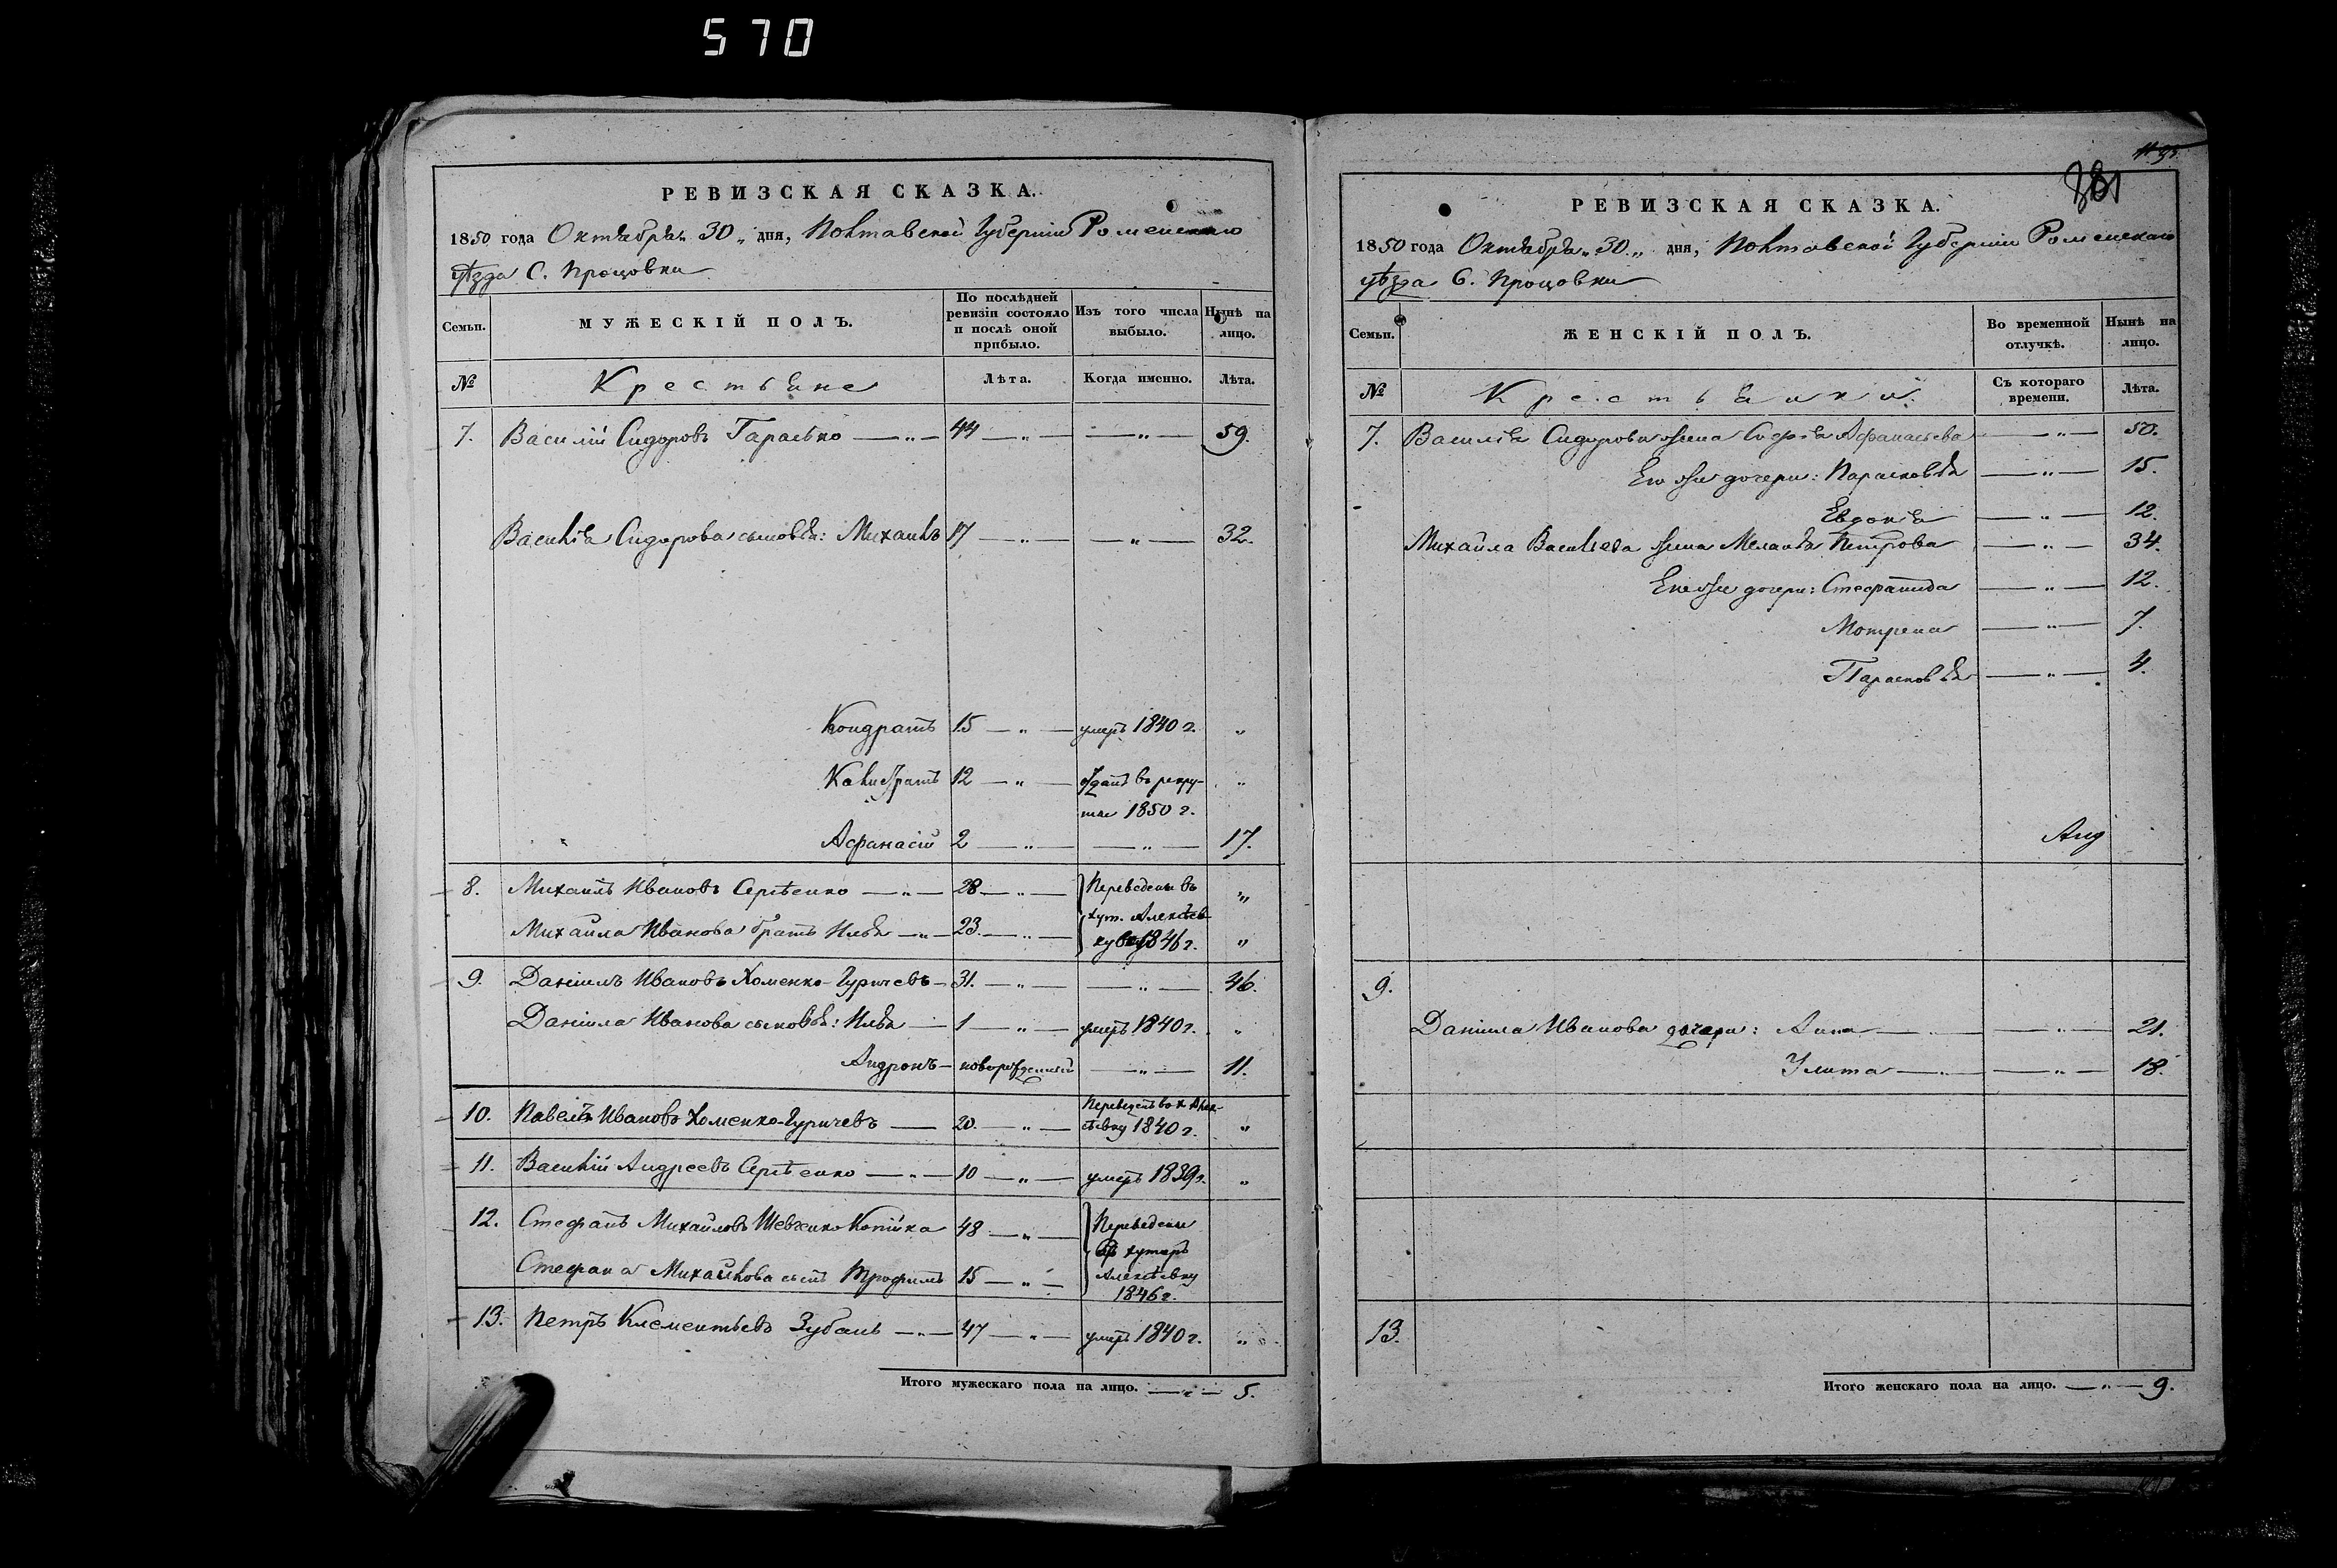 570
РЕВИЗСКАЯ СКАЗКА.
1850 года Октября „ 30 „ дня, Полтавской Губерніи Роменскаго
уѣзда С. Процовки
Семьи. МУЖЕСКІЙ ПОЛЪ. По послѣдней ревизіи состояло и послѣ оной прибыло. Изъ того числа выбыло. Нынѣ на лицо.
№ Крестьяне Лѣта. Когда именно. Лѣта.
7. Василій Сидоровъ Гарасько — „ — 44 — „ — — „ — 59.
Василія Сидорова сыновья: Михаилъ 17 — „ — — „ — 32.
Кондратъ 15 — „ — умеръ 1840 г. „
Калистратъ 12 — „ — отданъ въ рекру-
ты 1850 г. „
Афанасій 2 — „ — — „ — 17.
8. Михаилъ Ивановъ Сергѣенко — „ — 28 — „ — Переведены въ „
Михаила Иванова братъ Илья — „ — 23. — „ — хут. Алексѣев-
ку 1846 г. „
9. Даніилъ Ивановъ Хоменко-Гуричевъ — 31. — „ — — „ — 46.
Даніила Иванова сыновья: Илья — 1 — „ — умеръ 1840 г. „
Андронъ — новорожденный — „ — 11.
10. Павелъ Ивановъ Хоменко-Гуричевъ — 20. — „ — Переведенъ въ х Алек-
сѣевку 1840 г. „
11. Василій Андреевъ Сергѣенко — „ — 10 — „ — умеръ 1839 г. „
12. Стефанъ Михайловъ Шевченко Копійка 48 — „ — Переведены
въ хуторъ
Стефана Михайлова сынъ Трофимъ 15 — „ — Алексѣевку
1846 г.
13. Петръ Клементьевъ Зубань — „ — 47 — „ — умеръ 1840 г. „
Итого мужескаго пола на лицо. — „ — 5.
381
РЕВИЗСКАЯ СКАЗКА.
1850 года Октября „ 30 „ дня, Полтавской Губерніи Роменскаго
уѣзда С. Процовки
Семьи. ЖЕНСКІЙ ПОЛЪ. Во временной отлучкѣ. Нынѣ на лицо.
№ Крестьянки. Съ котораго времени. Лѣта.
7. Василія Сидорова жена Софія Афанасьева — „ — 50.
Ево же дочери: Парасковья — „ — 15.
Евдокія — „ — 12.
Михайла Васильева жена Меланья Петрова — „ — 34.
Ево же дочери: Стефанида — „ — 12.
Мотрена — „ — 7.
Парасковья — „ — 4.
9.
Даніила Иванова дочери: Анна — „ — 21.
Улита — „ — 18.
13.
Итого женскаго пола на лицо. — „ — 9.